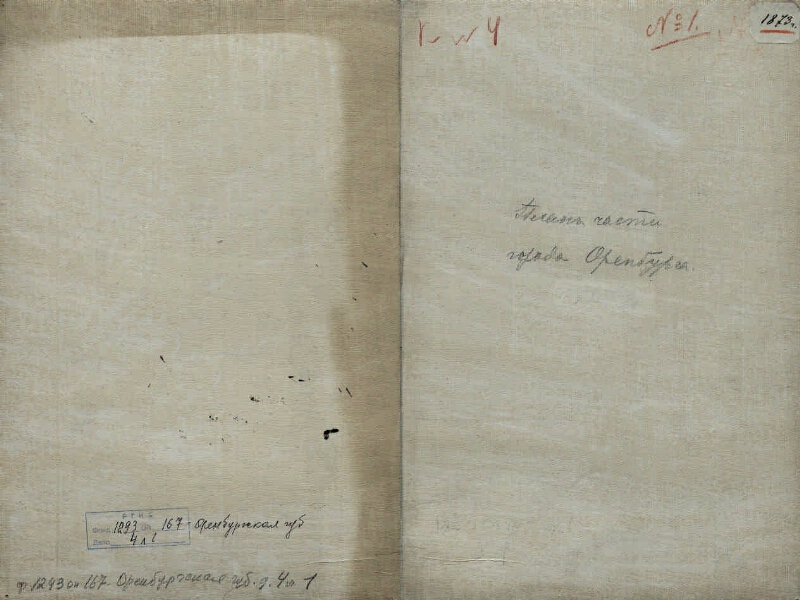 № 1.
1873 г.
Планъ части
города Оренбурга.
РГИА
Фонд 1293 Оп. 167 Оренбургская губ
4 л 1
ф 1293 оп 167 Оренбургская губ. д. 4 л 1